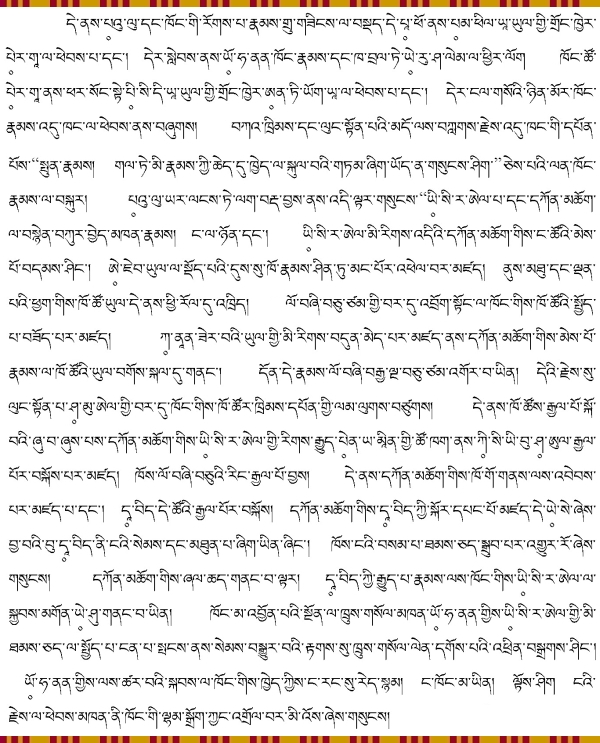 དེ་ནས་པཱུ་ལུ་དང་ཁོང་གི་རོགས་པ་རྣམས་གྲུ་གཟིངས་ལ་བསྡད་དེ་པཱ་ཕོ་ནས་པམ་ཕིལ་ཡ་ཡུལ་གྱི་གྲོང་ཁྱེར་
པེར་གཱ་ལ་ཕེབས་པ་དང་། དེར་སླེབས་ནས་ཡོ་ཧ་ནན་ཁོང་རྣམས་དང་ཁ་བྲལ་ཏེ་ཡེ་རུ་ཤ་ལེམ་ལ་ཕྱིར་ལོག ཁོང་ཚོ་
པེར་གཱ་ནས་ཕར་སོང་སྟེ་པི་སི་དི་ཡ་ཡུལ་གྱི་གྲོང་ཁྱེར་ཨན་ཏི་ཡོག་ཡ་ལ་ཕེབས་པ་དང་། དེར་ངལ་གསོའི་ཉིན་མོར་ཁོང་
རྣམས་འདུ་ཁང་ལ་ཕེབས་ནས་བཞུགས། བཀའ་ཁྲིམས་དང་ལུང་སྟོན་པའི་མདོ་ལས་བཀླགས་རྗེས་འདུ་ཁང་གི་དཔོན་
པོས་“སྤུན་རྣམས། གལ་ཏེ་མི་རྣམས་ཀྱི་ཆེད་དུ་ཁྱེད་ལ་སྐུལ་བའི་གཏམ་ཞིག་ཡོད་ན་གསུངས་ཤིག་”ཅེས་པའི་ལན་ཁོང་
རྣམས་ལ་བསྐུར། པཱུ་ལུ་ཡར་ལངས་ཏེ་ལག་བརྡ་བྱས་ནས་འདི་ལྟར་གསུངས་“ཡི་སི་ར་ཨེལ་པ་དང་དཀོན་མཆོག་
ལ་བསྙེན་བཀུར་བྱེད་མཁན་རྣམས། ང་ལ་ཉོན་དང་། ཡི་སི་ར་ཨེལ་མི་རིགས་འདིའི་དཀོན་མཆོག་གིས་ང་ཚོའི་མེས་
པོ་བདམས་ཤིང་། ཨེ་ཇིབ་ཡུལ་ལ་སྡོད་པའི་དུས་སུ་ཁོ་རྣམས་ཤིན་ཏུ་མང་པོར་འཕེལ་བར་མཛད། ནུས་མཐུ་དང་ལྡན་
པའི་ཕྱག་གིས་ཁོ་ཚོ་ཡུལ་དེ་ནས་ཕྱི་རོལ་དུ་འཁྲིད། ལོ་བཞི་བཅུ་ཙམ་གྱི་བར་དུ་འབྲོག་སྟོང་ལ་ཁོང་གིས་ཁོ་ཚོའི་སྤྱོད་
པ་བཟོད་པར་མཛད། ཀ་ནན་ཟེར་བའི་ཡུལ་གྱི་མི་རིགས་བདུན་མེད་པར་མཛད་ནས་དཀོན་མཆོག་གིས་མེས་པོ་
རྣམས་ལ་ཁོ་ཚོའི་ཡུལ་བགོས་སྐལ་དུ་གནང་། དོན་དེ་རྣམས་ལོ་བཞི་བརྒྱ་ལྔ་བཅུ་ཙམ་འགོར་བ་ཡིན། དེའི་རྗེས་སུ་
ལུང་སྟོན་པ་ཤ་མུ་ཨེལ་གྱི་བར་དུ་ཁོང་གིས་ཁོ་ཚོར་ཁྲིམས་དཔོན་གྱི་ལམ་ལུགས་བཙུགས། དེ་ནས་ཁོ་ཚོས་རྒྱལ་པོ་སྐོ་
བའི་ཞུ་བ་ཞུས་པས་དཀོན་མཆོག་གིས་ཡི་སི་ར་ཨེལ་གྱི་རིགས་རྒྱུད་པེན་ཡ་མིན་གྱི་ཚོ་ཁག་ནས་ཀི་སི་ཡི་བུ་ཤ་ཨུལ་རྒྱལ་
པོར་བསྐོས་པར་མཛད། ཁོས་ལོ་བཞི་བཅུའི་རིང་རྒྱལ་པོ་བྱས། དེ་ནས་དཀོན་མཆོག་གིས་ཁོ་གོ་གནས་ལས་འབེབས་
པར་མཛད་པ་དང་། དཱ་བིད་དེ་ཚོའི་རྒྱལ་པོར་བསྐོས། དཀོན་མཆོག་གིས་དཱ་བིད་ཀྱི་སྐོར་དཔང་པོ་མཛད་དེ་ཡེ་སེ་ཞེས་
བྱ་བའི་བུ་དཱ་བིད་ནི་ངའི་སེམས་དང་མཐུན་པ་ཞིག་ཡིན་ཞིང་། ཁོས་ངའི་བསམ་པ་ཐམས་ཅད་སྒྲུབ་པར་འགྱུར་རོ་ཞེས་
གསུངས། དཀོན་མཆོག་གིས་ཞལ་ཆད་གནང་བ་ལྟར། དཱ་བིད་ཀྱི་རྒྱུད་པ་རྣམས་ལས་ཁོང་གིས་ཡི་སི་ར་ཨེལ་ལ་
སྐྱབས་མགོན་ཡེ་ཤུ་གནང་བ་ཡིན། ཁོང་མ་འབྱོན་པའི་སྔོན་ལ་ཁྲུས་གསོལ་མཁན་ཡོ་ཧ་ནན་གྱིས་ཡི་སི་ར་ཨེལ་གྱི་མི་
ཐམས་ཅད་ལ་སྤྱོད་པ་ངན་པ་སྤངས་ནས་སེམས་བསྒྱུར་བའི་རྟགས་སུ་ཁྲུས་གསོལ་ལེན་དགོས་པའི་འཕྲིན་བསྒྲགས་ཤིང་།
ཡོ་ཧ་ནན་གྱིས་ལས་ཚར་བའི་སྐབས་ལ་ཁོང་གིས་ཁྱེད་ཀྱིས་ང་རང་སུ་རེད་སྙམ། ང་ཁོང་མ་ཡིན། ལྟོས་ཤིག ངའི་
རྗེས་ལ་ཕེབས་མཁན་ནི་ཁོང་གི་ལྷམ་སྒྲོག་ཀྱང་འགྲོལ་བར་མི་འོས་ཞེས་གསུངས།